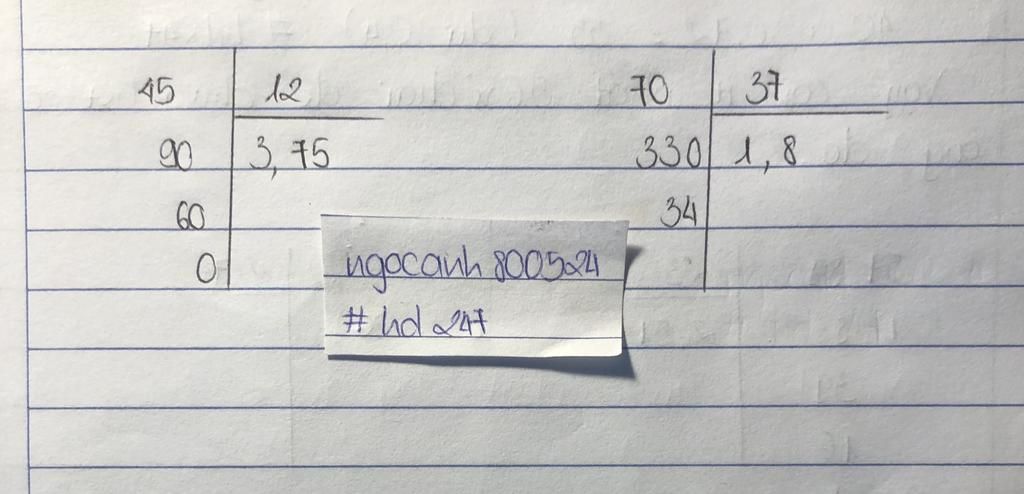 45 12
90 3,75
60
0
70 37
330 1,8
34
ngocanh800524
#hd247